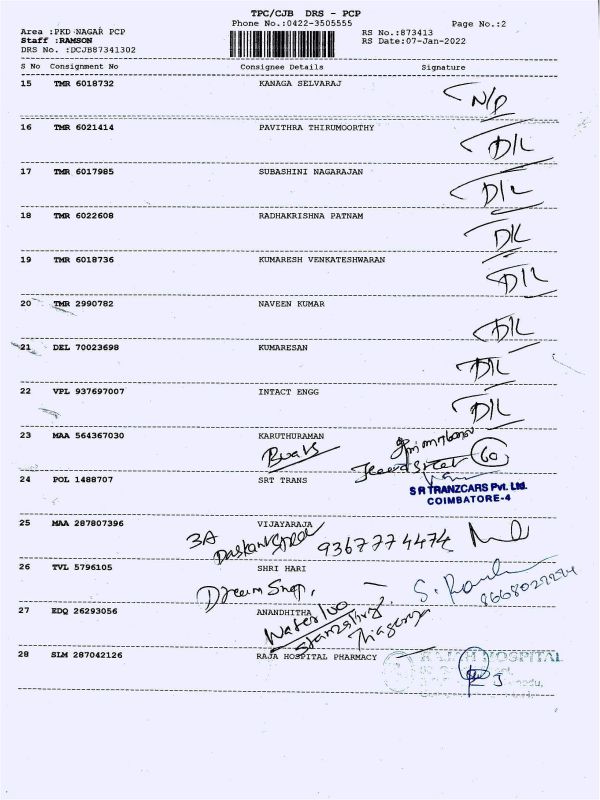 TPC/CJB DRS - PCP
Phone No.:0422-3505555 Page No.:2
Area :PKD NAGAR PCP RS No.:873413
Staff :RAMSON RS Date:07-Jan-2022
DRS No. :DCJB87341302
S No Consignment No Consignee Details Signature
15 TMR 6018732 KANAGA SELVARAJ N/P
16 TMR 6021414 PAVITHRA THIRUMOORTHY D/L
17 TMR 6017985 SUBASHINI NAGARAJAN D/L
18 TMR 6022608 RADHAKRISHNA PATNAM D/L
19 TMR 6018736 KUMARESH VENKATESHWARAN D/L
20 TMR 2990782 NAVEEN KUMAR D/L
21 DEL 70023698 KUMARESAN D/L
22 VPL 937697007 INTACT ENGG D/L
23 MAA 564367030 KARUTHURAMAN
24 POL 1488707 SRT TRANS
S R TRANZCARS Pvt. Ltd.
COIMBATORE-4
25 MAA 287807396 VIJAYARAJA
3A 9367774474
26 TVL 5796105 SHRI HARI
Dream Shop,
27 EDQ 26293056 ANANDHITHA
Waterloo
28 SLM 287042126 RAJA HOSPITAL PHARMACY
HOSPITAL